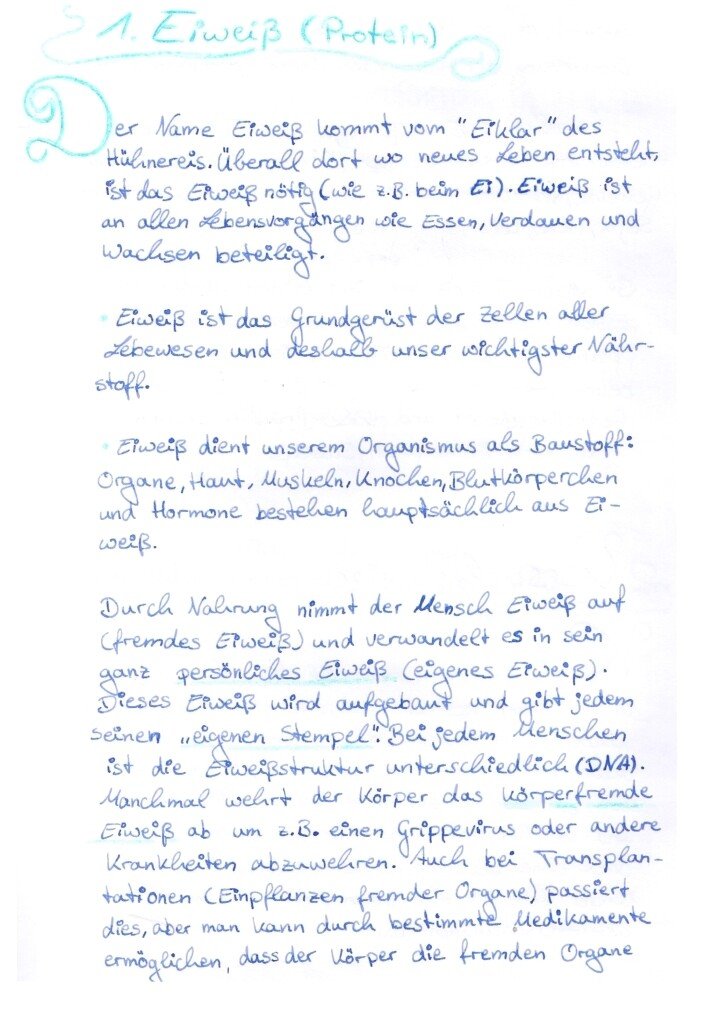 1. Eiweiß (Protein)
Der Name Eiweiß kommt vom "Eiklar" des
Hühnereis. Überall dort wo neues Leben entsteht,
ist das Eiweiß nötig (wie z.B. beim Ei). Eiweiß ist
an allen Lebensvorgängen wie Essen, Verdauen und
Wachsen beteiligt.
• Eiweiß ist das Grundgerüst der Zellen aller
Lebewesen und deshalb unser wichtigster Nähr-
stoff.
• Eiweiß dient unserem Organismus als Baustoff:
Organe, Haut, Muskeln, Knochen, Blutkörperchen
und Hormone bestehen hauptsächlich aus Ei-
weiß.
Durch Nahrung nimmt der Mensch Eiweiß auf
(fremdes Eiweiß) und verwandelt es in sein
ganz persönliches Eiweiß (eigenes Eiweiß).
Dieses Eiweiß wird aufgebaut und gibt jedem
seinen „eigenen Stempel". Bei jedem Menschen
ist die Eiweißstruktur unterschiedlich (DNA).
Manchmal wehrt der Körper das körperfremde
Eiweiß ab um z.B. einen Grippevirus oder andere
Krankheiten abzuwehren. Auch bei Transplan-
tationen (Einpflanzen fremder Organe) passiert
dies, aber man kann durch bestimmte Medikamente
ermöglichen, dass der Körper die fremden Organe